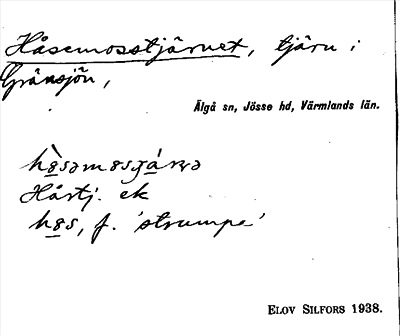 Håsemosstjärnet, tjärn i
Gränsjön,
Älgå sn, Jösse hd, Värmlands län.
Hårtj. ek
f. 'strumpa'
ELOV SILFORS 1938.